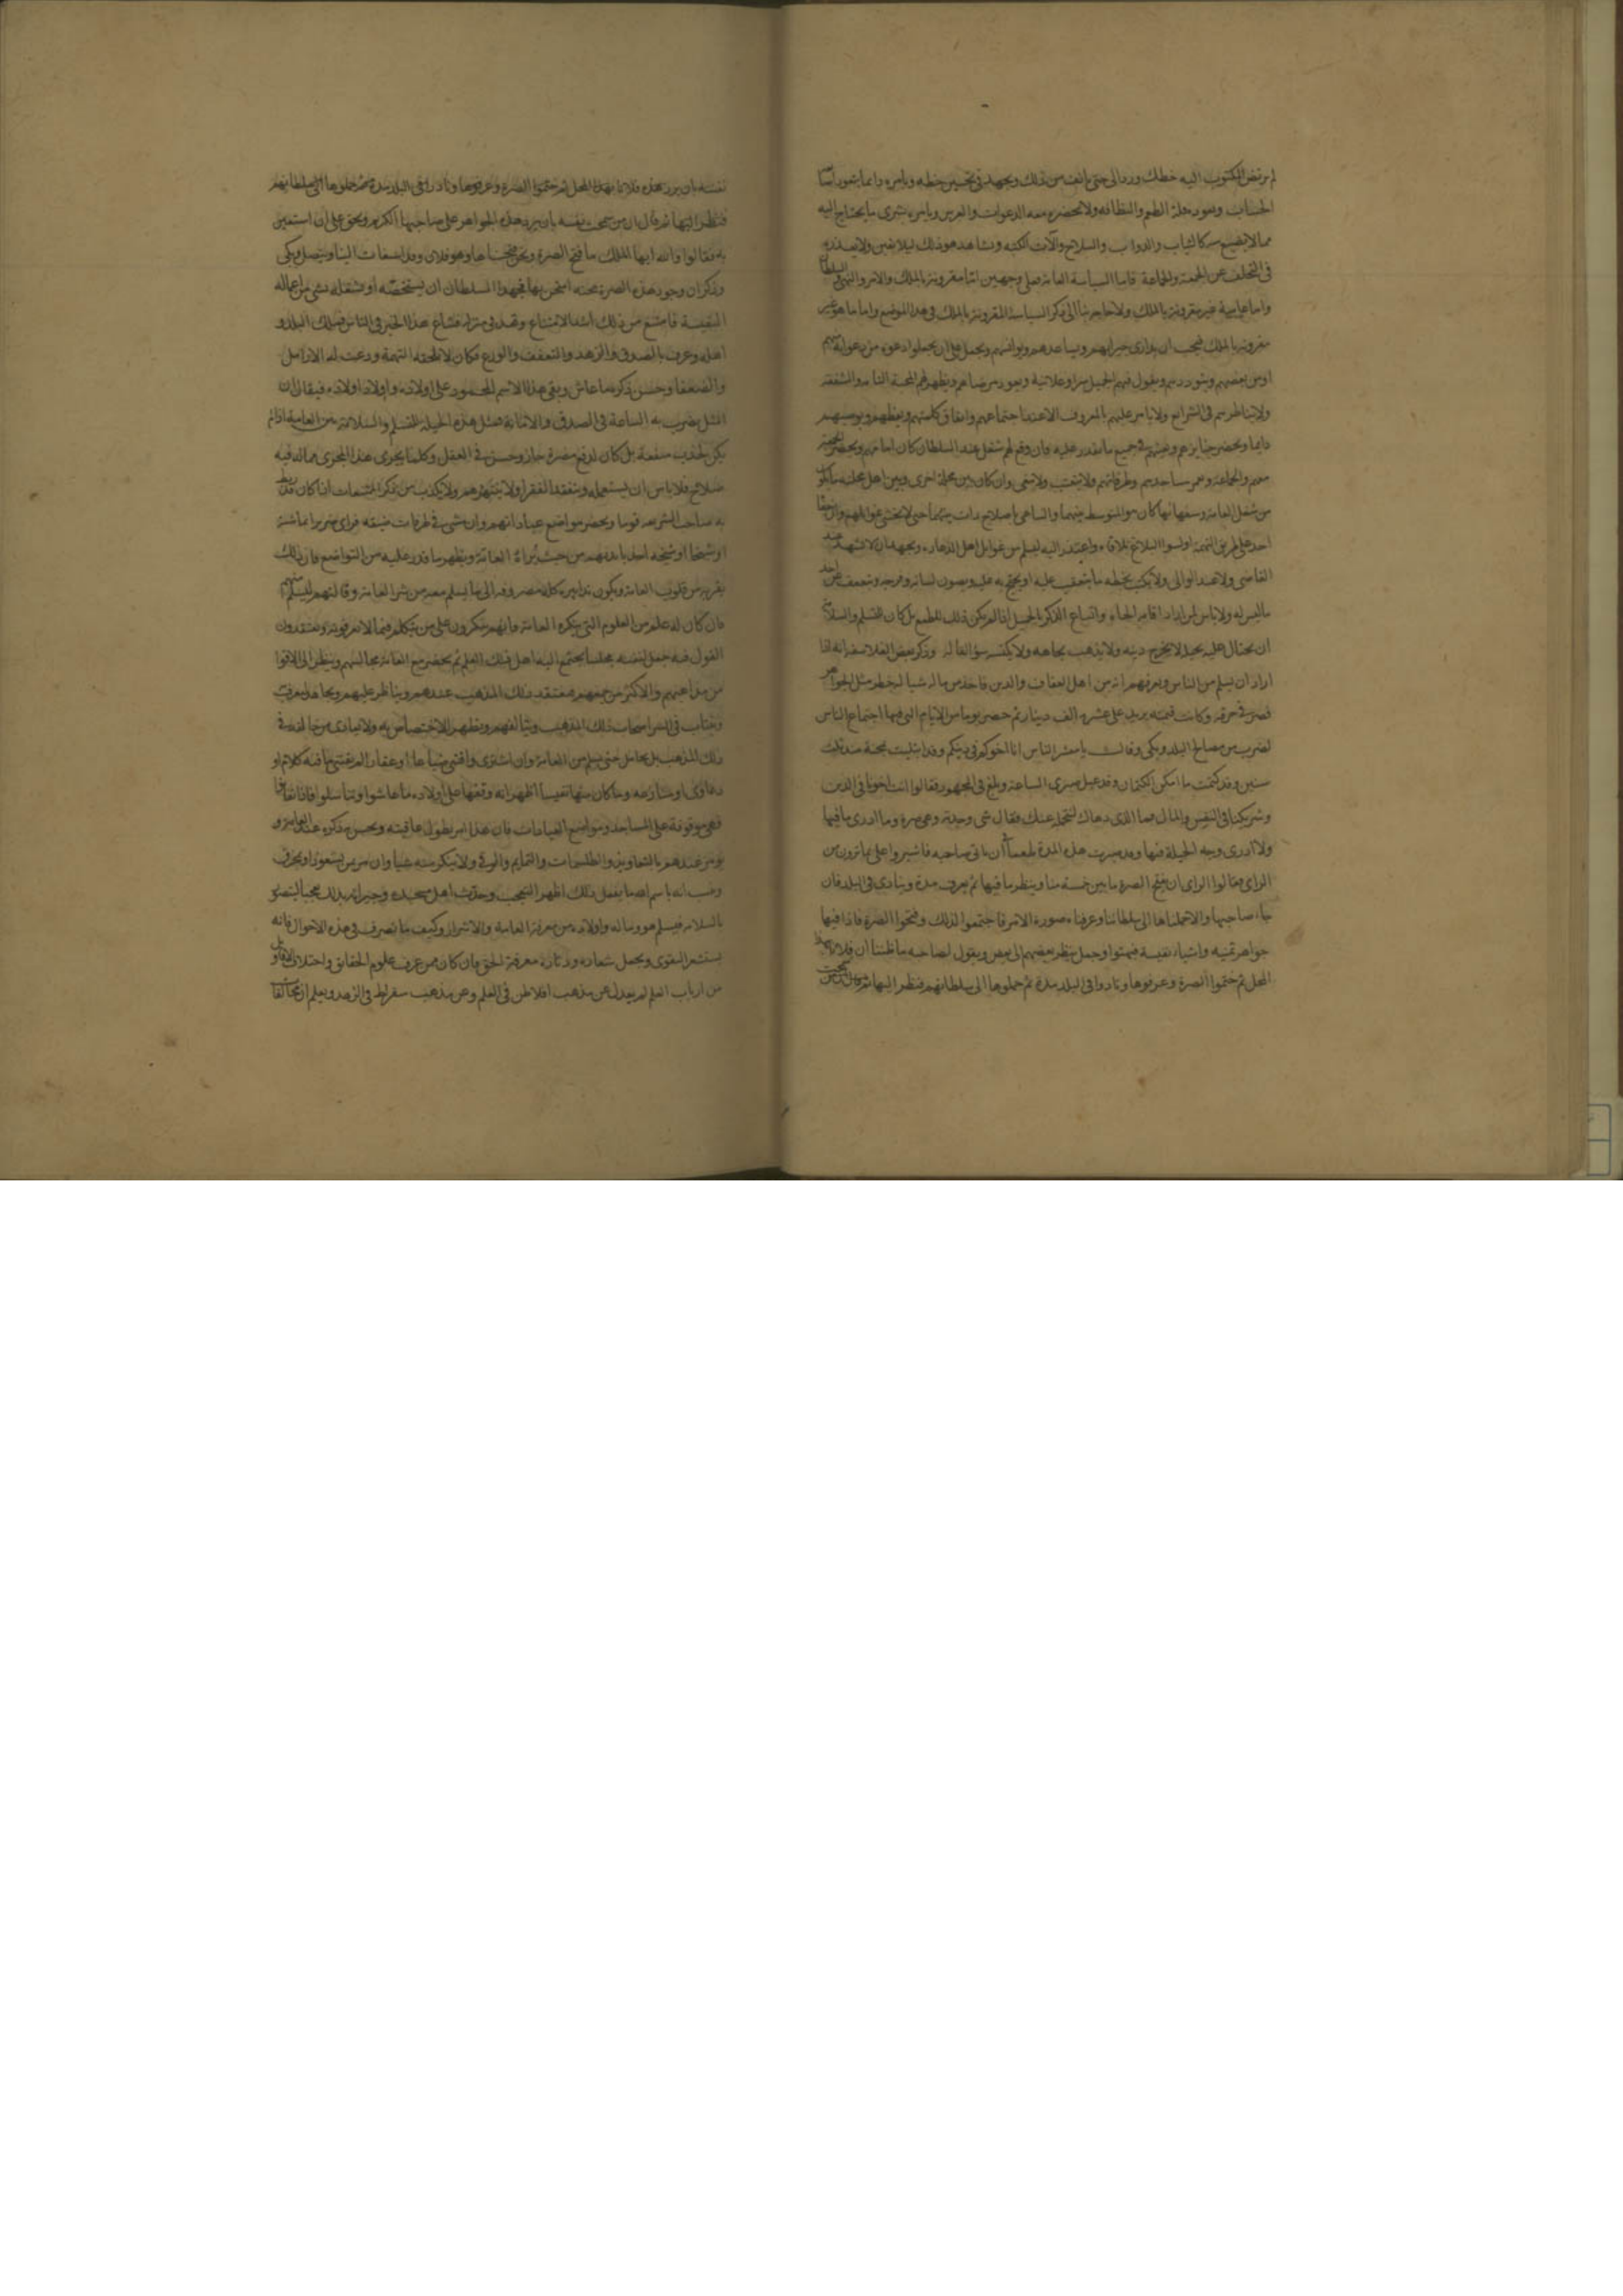 لم يرتض المكتوب اليه خطك وردالى حتى يانف من ذلك ويجهد فى تحسين خطه ويامره دايما بتعود
الحساب ويعود حلة الطعم والنظافه ولا تحضره معه الدعوات والعرس ويامره بشرى ما يحتاج اليه
مما لا يضيع كالثياب والدواب والسلاح وآلات الكتبه وتشاهد هو ذلك ليلا يغبن ولا يعذره
فى التخلف عن الجمعة والجماعة فاما السياسة العامة فعلى وجهين اما مقرونة بالملك والامر والنهى
واما عامية غير مقرونة بالملك ولا حاجة بنا الى ذكر السياسة المقرونة بالملك فى هذا الموضع واما ما هو غير
مقرونة بالملك فيجب ان يدارى جيرانهم ويساعدهم ويوانسهم ويحمل على ان يجعلوا دعوة من دعواته
اومن بعضهم ويتودد ويقول فيهم الجميل سرا وعلانية ويعود مرضاهم ويظهر لهم المحبة التامة والشفقة
ولا يناظرهم فى الشرايع ولا يامر عليهم بالمعروف الا عند اجتماعهم واتفاق كلمتهم ويعظهم ويوصيهم
دايما ويحضر جنايزهم ويعينهم فى جميع ما يقدر عليه وان وقع لهم شغل عند السلطان كان امامهم ويحضر
معهم والجماعة وعمر مساجدهم وطرقاتهم ولا يتعب ولا وان كان بين محلة اخرى وبين اهل محلته
من شغل العامة وسفهائها كان هو المتوسط بينهما والساعى باصلاح ذات بينهما حتى لا يخشى غوائلهم وان
احد على طريق التهمة السلاح تلافاه واعتذر اليه ليسلم من غوائل اهل الدعاره ويجهد ان لا يشهد عند
القاضى ولا عند الوالى ولا يكتب بخطه ما يتعقب عليه او يحتج به عليه ويصون لسانه وفرجه ويتعفف عن اخذ
ما ليس له ولا باس لمن اراد اقامة الجاه واتباع الذكر الجميل اذا لم يكن ذلك للطمع بل كان للتسلم والسلامة
ان يحتال عليه بحيلة لا يخرج دينه ولا يذهب بجاهه ولا يكسبه سؤالقاله وذكر بعض الفلاسفه انه اذا
اراد ان يسلم من الناس ويعرفهم انه من اهل العفاف والدين فاخذ من ماله شيا له خطر مثل الجواهر
فصره فى خرقة وكانت قيمته يزيد على عشرة الف دينار ثم حضر يوما من الايام التى فيها اجتماع الناس
لضرب من مصالح البلد وبكى وقالـ يا معشر الناس انا اخوكم فى دينكم وقد ابتليت بمحنة منذ ثلث
سنين وقد كتمت ما امكن الكتمان وقد عيل صبرى الساعة وبلغ فى المجهود فقالوا انت اخونا فى الدين
وشريكنا فى النفس والمال فما الذى دهاك لنتحمل عنك فقال شى وجدته وهى صره وما ادرى ما فيها
ولا ادرى وجه الحيلة فيها وقد صبرت هذه المدة طمعا فى ان ياتى صاحبه فاشيروا على بما ترون من
الراى فقالوا الراى ان يفتح الصرة ما بين خمسة منا وينظر ما فيها ثم يعرف مدة وينادى فى البلد فان
جاء صاحبها والا حملناها الى سلطاننا وعرفناه صورة الامر فاجتمعوا لذلك وفتحوا الصرة فاذا فيها
جواهر ثمينه واشياء نفيسة فبهتوا وجعل ينظر بعضهم الى بعض ويقول لصاحبه ما ظننا ان فلانا بهذا
المحل ثم ختموا الصرة وعرفوها ونادوا فى البلد مدة ثم حملوها الى سلطانهم فنظر اليها ثم قال
نفسه بان يرد هذه فلانا بهذا المحل ثم ختموا الصرة وعرفوها ونادوا فى البلد مدة ثم حملوها الى سلطانهم
فنظر اليها ثم قال ان من سمحت نفسه بان يرد هذه الجواهر على صاحبها الكريم ويحق على ان استعين
به فقالوا والله ايها الملك ما فتح الصرة ونحن فتحناها وهو فلان وقد استغاث الينا وتنصل وبكى
وذكر ان وجود هذه الصرة محنة امتحن بها فجهد السلطان ان يستخصه او يشغله بشى من اعماله
النفيسة فامتنع من ذلك اشد الامتناع وقعد فى منزله فشاع هذا الخبر فى الناس فملك البلد و
اهله وعرف بالصدق والزهد والتعفف والورع فكان لا تلحقه التهمة ودعت له الارامل
والضعفا وحسن ذكره ما عاش وبقى هذا الاسم المحمود على اولاده واولاد اولاده فيقال ان
المثل يضرب به الساعة فى الصدق والامانة فمثل هذه الحيلة للتسلم والسلامة من العامة اذا لم
يكن لجذب منفعة بل كان لدفع مضرة جاز وحسن فى العقل وكلما يجرى هذا المجرى مما له فيه
صلاح فلا باس ان يستعمله ويتفقد الفقرا ولا ينتهرهم ولا يكذب من ذكر المنامات اذا كان
به صاحب الشريعة قوما ويحضر مواضع عباداتهم وان مشى فى طرقات ضيقه فراى ضريرا ماشيا
او شيخا او شيخه اخذ بايديهم من حيث تراه العامة ويظهر ما قدر عليه من التواضع فان ذلك
يقربه من قلوب العامة ويكون تدابيره كلها مصروفه الى ما يسلم معه من شر العامة وقالتهم
فان كان له علم من العلوم التى ينكره العامة فانهم ينكرون على من يتكلم فيما لا يعرفونه ويعتقدون
القول فيه جعل لنفسه مجلسا يجتمع اليه اهل ذلك العلم ثم يحضر مع العامة مجالسهم وينظر الى الاقوا
من مذاهبهم والاكثر من جمعهم فيعتقد ذلك المذهب عندهم ويناظر عليهم ويجاهد
ذلك المذهب ويتالفهم ويظهر الاختصاص به ولا يعادى من خالفه فى
ذلك المذهب بل يجامل حتى يسلم من العامة وان اشترى واقتنى ضياعا او عقارا لم يقتنى ما فيه كلام او
دعاوى او منازعه وما كان منها نفيسا اظهر انه وقفها على اولاده ما عاشوا وتناسلوا فاذا
فهى موقوفة على المساجد ومواضع العبادات فان هذا امر يطول عاقبته ويحسن ذكره عند العامة و
يومن عندهم بالتعاويذ والطلسمات والتمايم والرقى ولا ينكر منه شيا وان مر بمن يشعوذ او يخرف
انه باسم الله ما يفعل ذلك اظهر التعجب وحدث اهل مسجده وجيرانه بذلك
بالسلامة فيسلم هو وماله واولاده من معرة العامة والاشرار وكيف ما تصرف فى هذه الاحوال فانه
يستشعر التقوى ويجعل شعاره ودثاره معرفة الحق فان كان ممن عرف علوم الحقائق واختلاف
من ارباب العلم لم يعدل عن مذهب افلاطن فى العلم وعن مذهب سقراط فى الزهد ويعلم ان